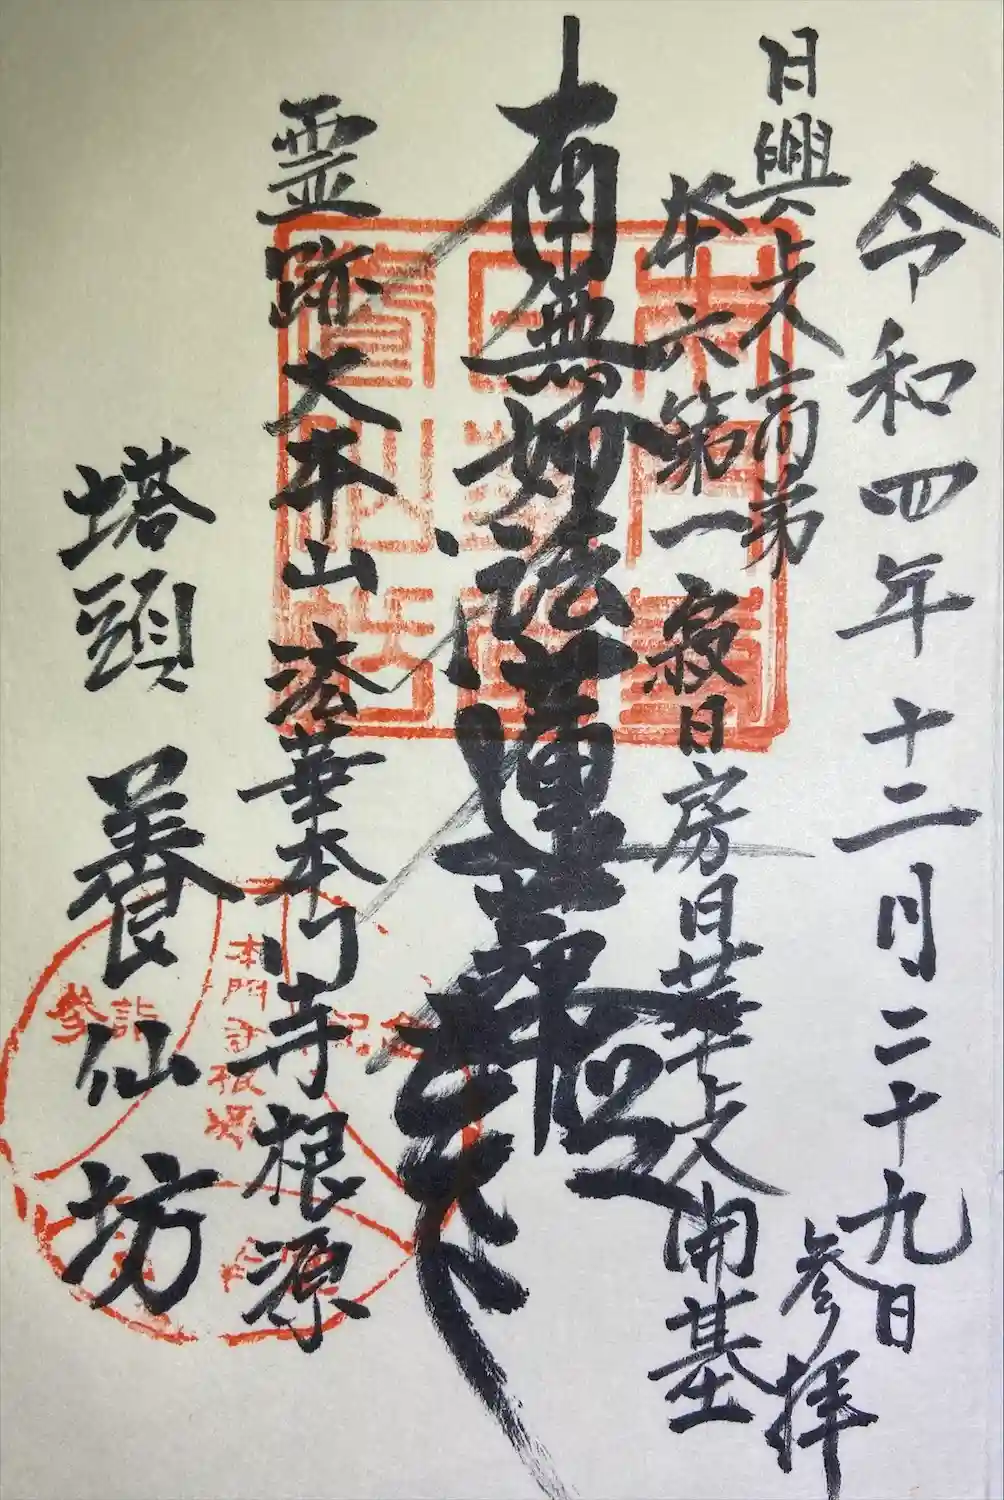 令和四年十二月二十九日
参拝
日興上人高弟
本六第一 寂日房日華上人開基
南無妙法蓮華経
霊跡 大平山 法華本門寺根源
塔頭 養仙坊
本門寺根源
参詣
記念